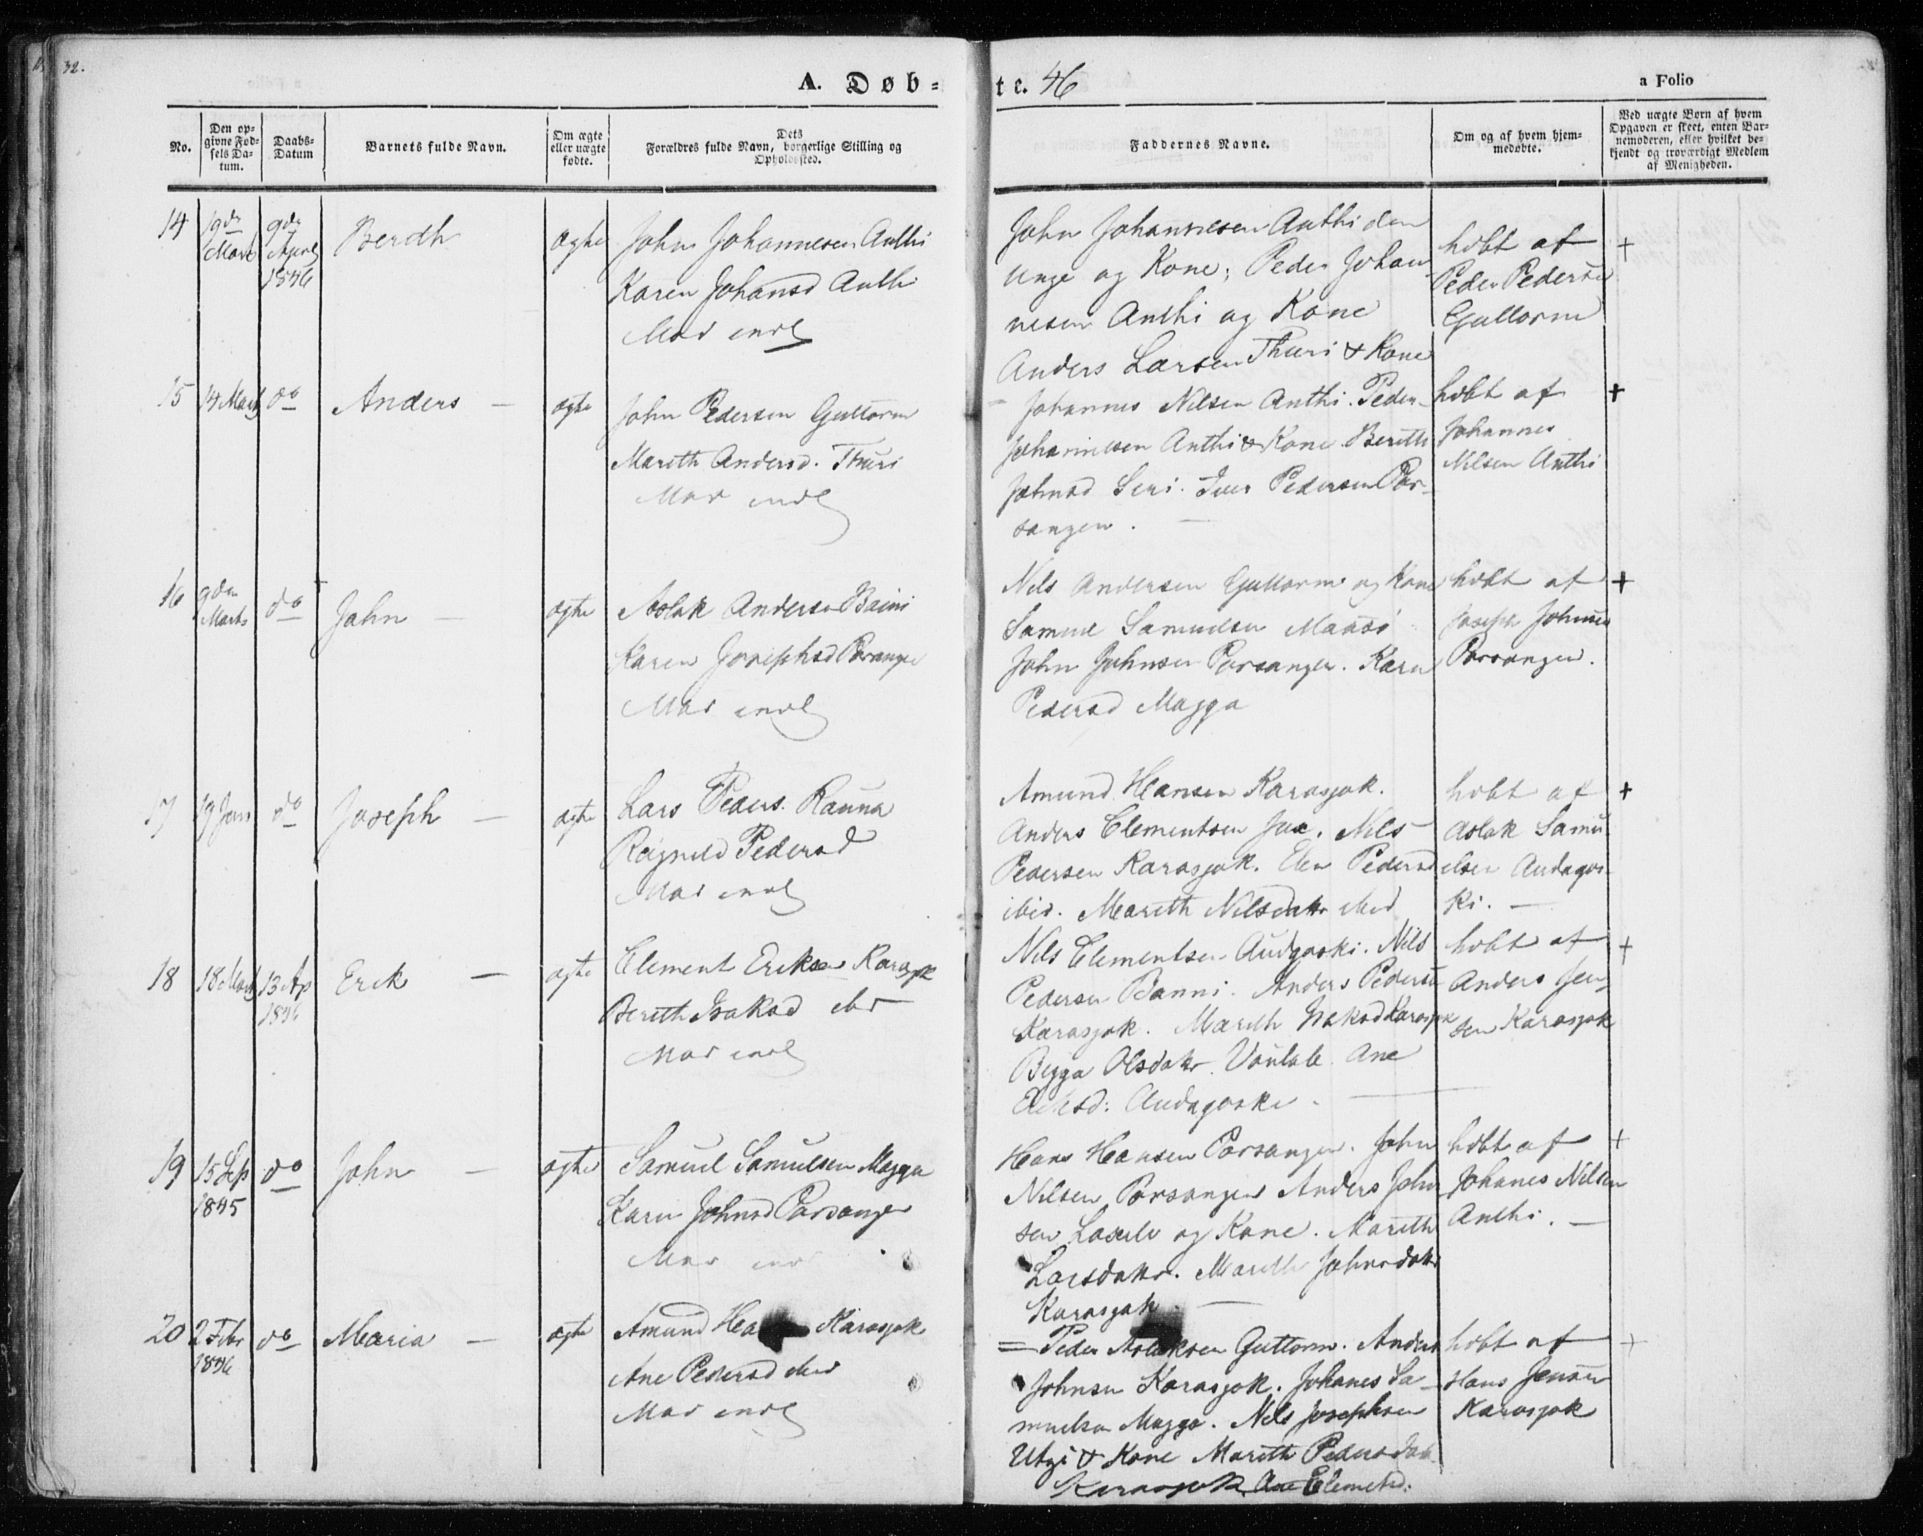 32.
A. Døb-
te. 46
a Folio
No.
Den op-
givne Fød-
sels Da-
tum.
Daabs-
Datum
Barnets fulde Navn.
Om ægte
eller uægte
fødte.
Dets
Forældres fulde Navn, borgerlige Stilling og
Opholdssted.
Faddernes Navne.
Om og af hvem hjem-
medøbte.
Ved uægte Børn af hvem
Opgaven er skeet, enten Bar-
nemoderen, eller hvilket be-
kjendt og troværdigt Medlem
af Menigheden.
14
Marts
9de
April
1846
Berith
ægte
John Johannesen Anthi
Karen Johansd Anthi
John Johannesen Anthi den
unge og Kone; Peder Johan-
nesen Anthi og Kone
Anders Larsen Thuri & Kone
hdbt af
Peder Pedersen
Guttorm
+
15
14 Marts
do
Anders —
ægte
John Pedersen Guttorm
Marith Andersd. Thuri
Johannes Nilsen Anthi. Peder
Johannesen Anthi & Kone Berith
Johnsd Seri. Iver Pedersen Por-
sangen. —
hdbt af
Johannes
Nilsen Anthi
+
16
9de
Marts
do
John —
ægte
Aslak Andersen Baini
Karen Josephsd Porsanger
Nils Andersen Guttorm og Kone
Samuel Samuelsen
John Johnsen Porsanger. Karen
Pedersd Magga
hdbt af
Joseph Johnsen
Porsanger.
+
17
Jan
do
Joseph —
ægte
Lars Peders. Rauna
Ragnild Pedersd
Amund Hansen Karasjok.
Anders Clementsen Jux. Nils
Pedersen Karasjok. Elen Pedersd
ibid. Marith Nilsdatr ibid
hdbt af
Aslak Samu-
elsen Audagos-
ki. —
+
18
18 Marts
13 Ap
1846
Erik —
ægte
Clement Eriksen Karasjok
Berith Isaksd ibid
Nils Clementsen Audgoski. Nils
Pedersen Banni. Anders Pedersen
Karasjok. Marith Isaksd Karasjok
Bigga Olsdatr. Ane
Eriksd: Audagoski —
hdbt af
Anders Jen-
sen Karasjok
+
19
15 Sep
1845
do
John —
ægte
Samuel Samuelsen Magga
Karen Johnsd Porsanger
Hans Hansen Porsanger. John
Nilsen Porsanger Anders John
sen og Kone. Marith
Larsdatr. Marith Johnsdatr
Karasjok. —
hdbt af
Johanes Nilsen
Anthi. —
+
20
2 Febr
1846
do
Maria —
ægte
Amund Karasjok
Ane Pedersd ibid
Peder Aslaksen Guttorm. Anders
Johnsen Karasjok. Johanes Sa-
muelsen Magga. Nils Josephsen
Utzi & Kone Marith Pedersdatr
Karasjok. Ane Clemetsd:
hdbt af
Hans Jensen
Karasjok
+